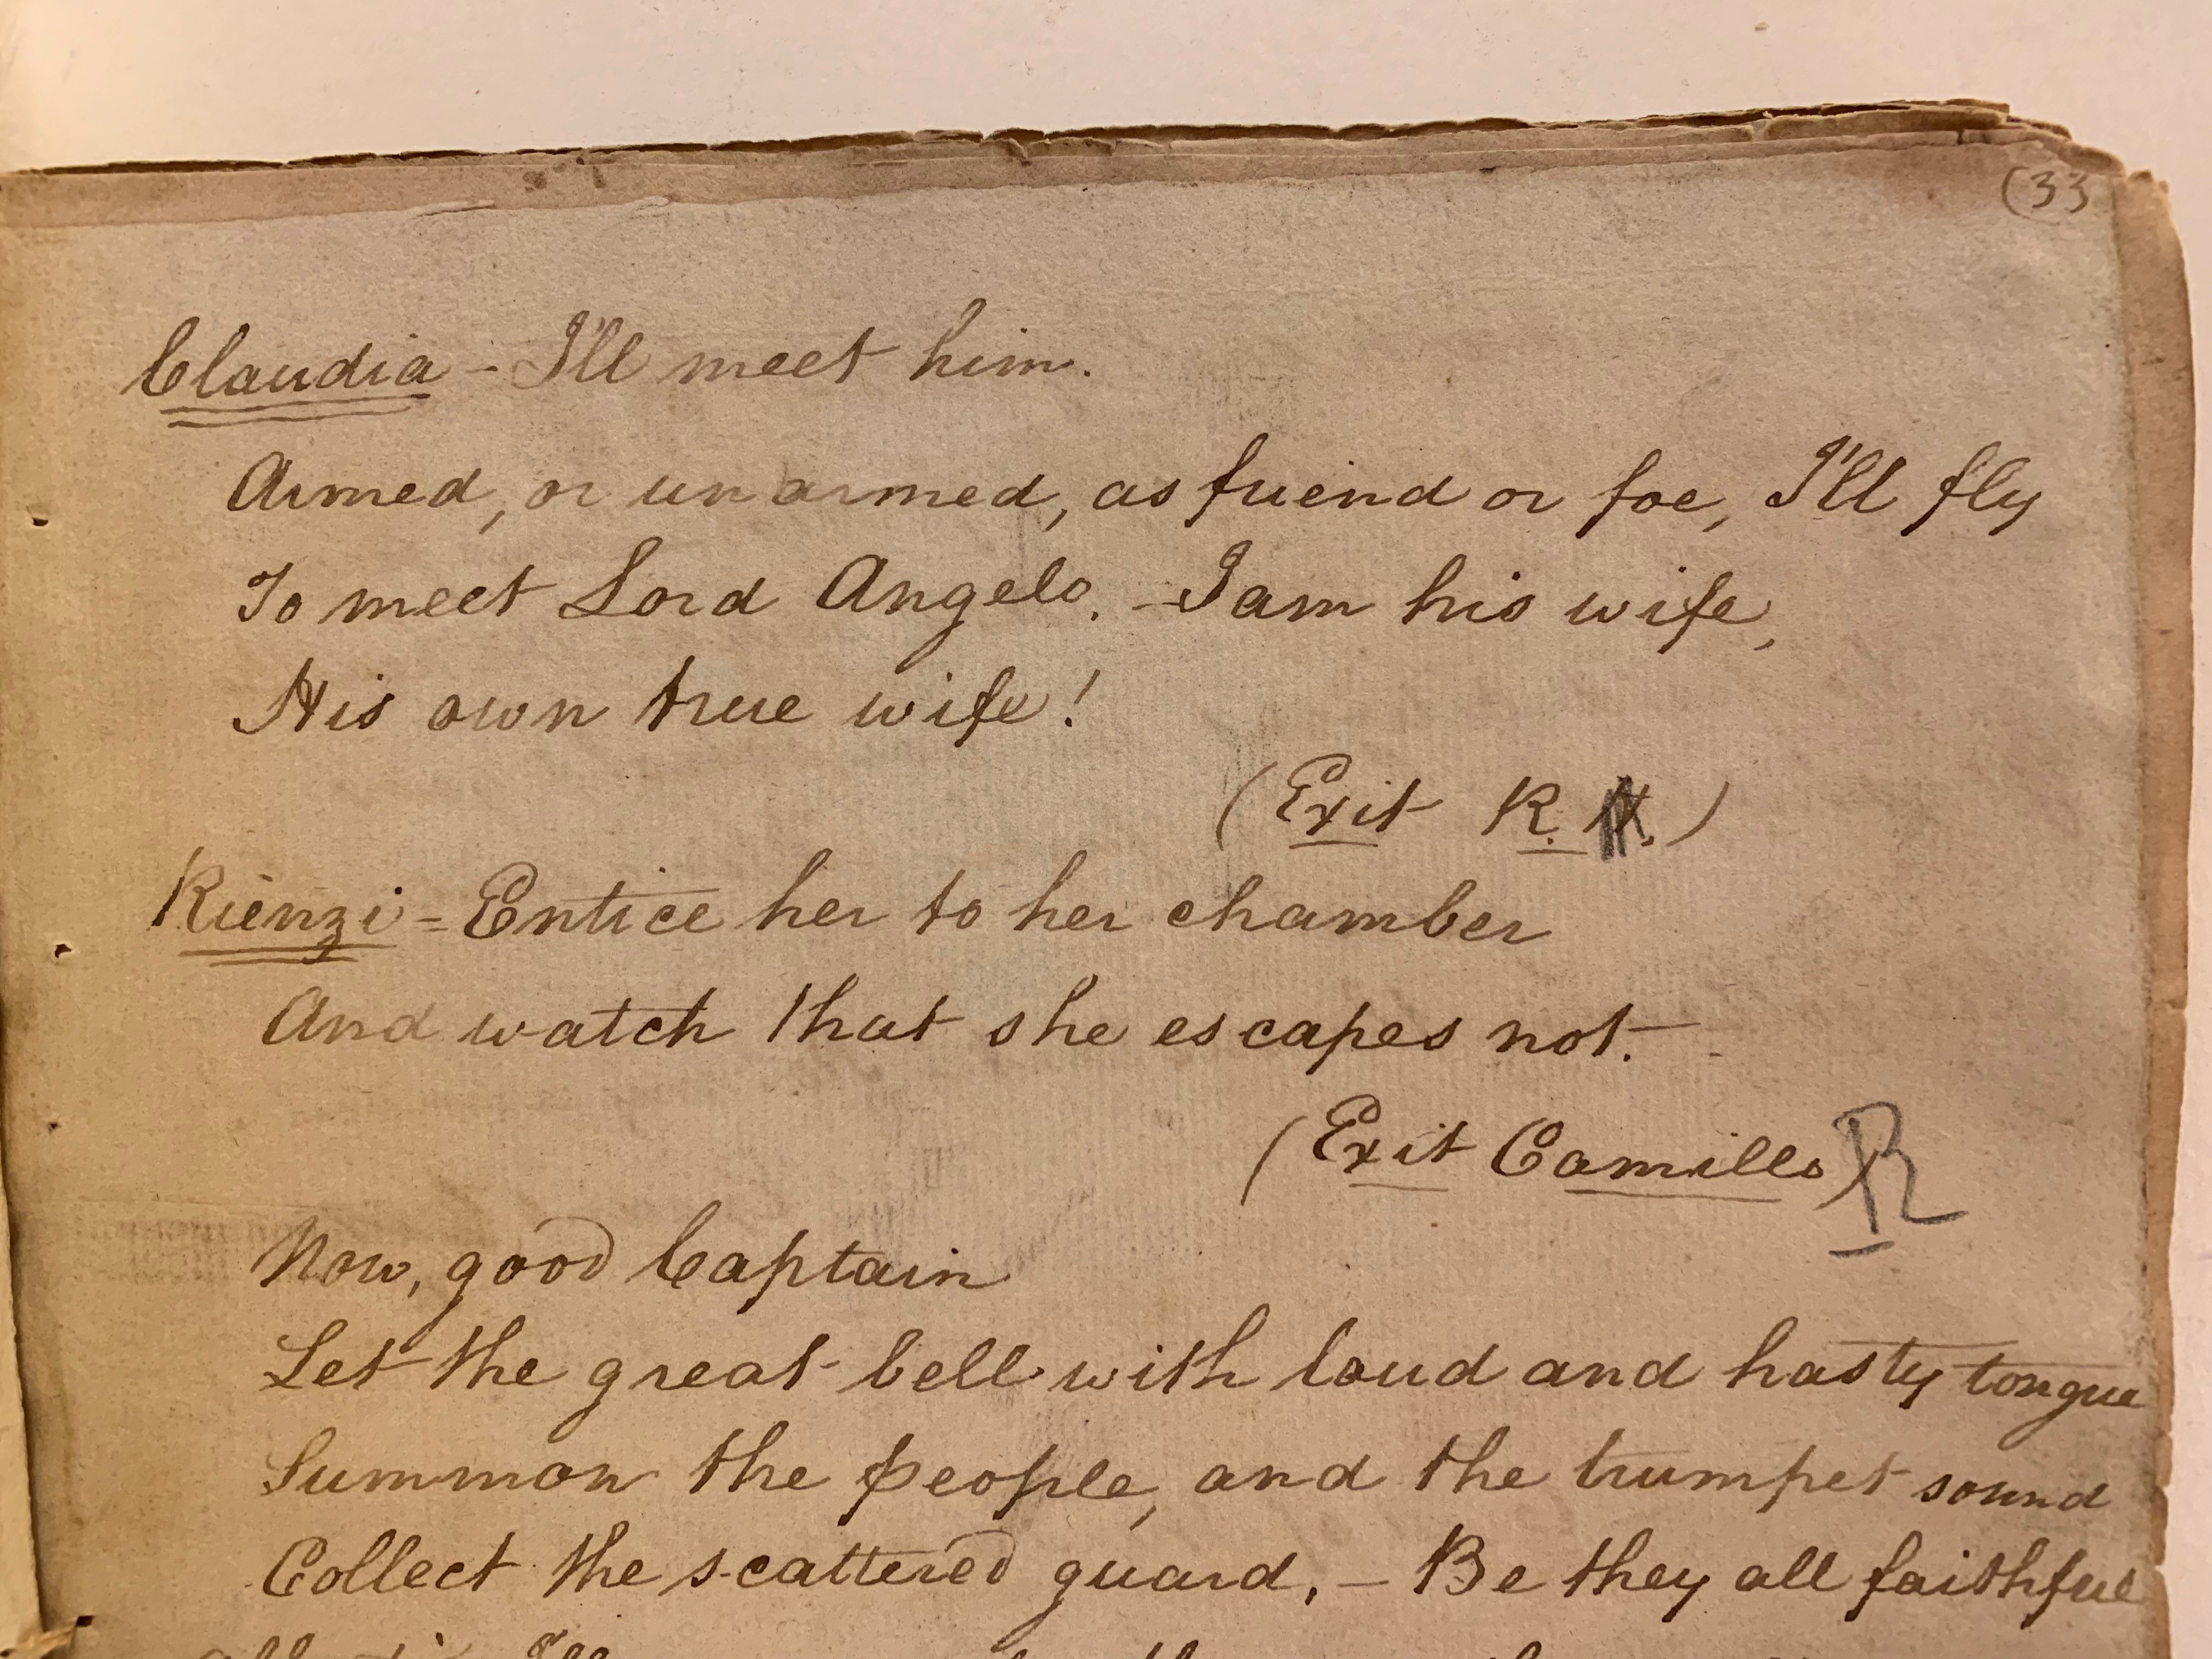 (33
Claudia - I'll meet him.
Armed, or unarmed, as friend or foe, I'll fly
To meet Lord Angelo. - I am his wife,
His own true wife!
(Exit R. H.)
Rienzi = Entice her to her chamber
And watch that she escapes not. -
(Exit Camillo R
Now, good Captain
Let the great bell with loud and hasty tongue
Summon the people, and the trumpet sound
Collect the scattered guard, - Be they all faithful